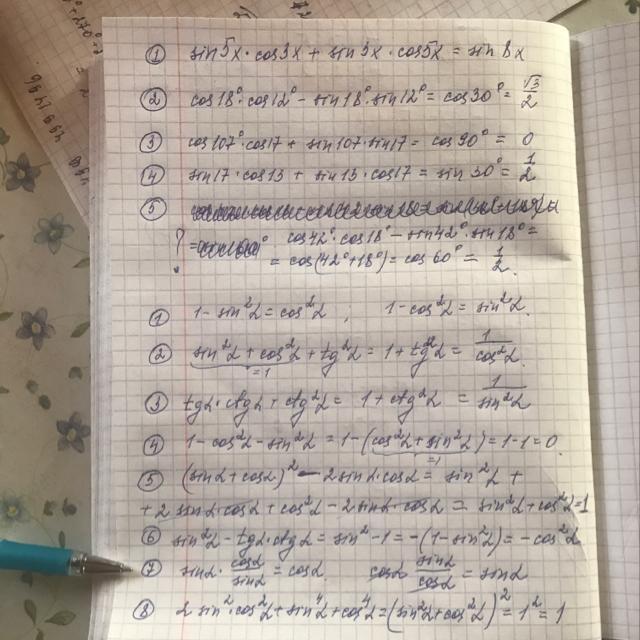 ① sin5x·cos3x + sin3x·cos5x = sin8x
② cos18°·cos12° - sin18°·sin12° = cos30° = √3/2
③ cos107°·cos17 + sin107·sin17 = cos90° = 0
④ sin17·cos13 + sin13·cos17 = sin30° = 1/2
⑤
? = cos42°·cos18° - sin42°·sin18° =
= cos(42°+18°) = cos60° = 1/2.
① 1 - sin²α = cos²α, 1 - cos²α = sin²α.
② sin²α + cos²α + tg²α = 1 + tg²α = 1/cos²α
=1
③ tgα·ctgα + ctg²α = 1 + ctg²α = 1/sin²α
④ 1 - cos²α - sin²α = 1 - (cos²α + sin²α) = 1 - 1 = 0.
=1
⑤ (sinα + cosα)² - 2sinα·cosα = sin²α +
+ 2sinα·cosα + cos²α - 2sinα·cosα = sin²α + cos²α = 1
⑥ sin²α - tgα·ctgα = sin² - 1 = -(1 - sin²α) = -cos²α
⑦ sinα · cosα/sinα = cosα cosα sinα/cosα = sinα
⑧ 2sin²·cos²α + sin⁴α + cos⁴α = (sin²α + cos²α)² = 1² = 1